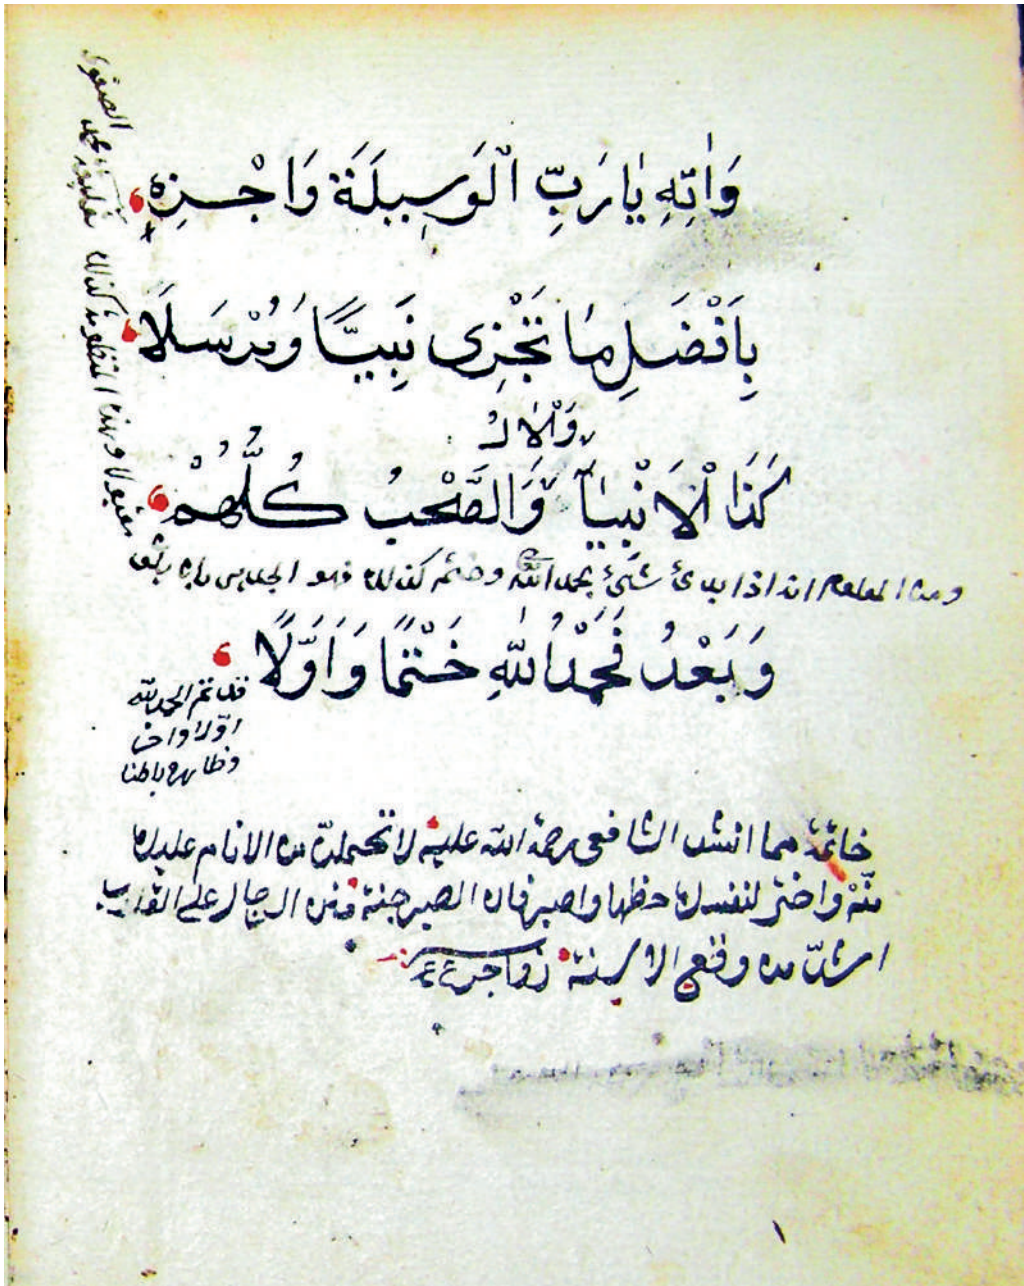 وَاٰتِهِ يٰارَبِّ الْوَسِيلَةَ وَاجْزِهِ
بِاَفْضَلِ مٰا تَجْزِى نَبِيًّا وَمُرْسَلَا
وَالْاٰلُ
كَذَا الْاَنْبِيٰآ وَالصَّحْبُ كُلُّهُمْ
ومن المعلوم انه اذا بدئ شئ بحمد الله وختم كذلك فهو الجدير بان يكون
وَبَعْدُ فَحَمْدُ اللّٰهِ خَتْمًا وَاَوَّلَا
قد تم الحمد لله
اولا واخرا
وظاهرا وباطنا
مقبولا وهذه المنظومة كذلك محمد الصفوى
خاتمة مما انشد الشافعى رحمة الله عليه لا تحملن من الانام عليك
منّة واختر لنفسك حظها واصبر فان الصبر جنة فمنن الرجال على القلوب
اشدّ من وقع الاسنة زواجر